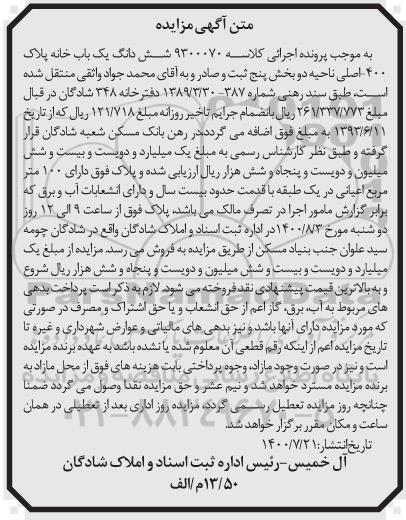 متن آگهی مزایده
به موجب پرونده اجرائی کلاسه ۹۳۰۰۰۷۰ شش دانگ یک باب خانه پلاک
۴۰۰-اصلی ناحیه دو بخش پنج ثبت و صادر و به آقای محمد جواد واثقی منتقل شده
است، طبق سند رهنی شماره ۳۸۷-۱۳۸۹/۳/۳۰ دفترخانه ۳۴۸ شادگان در قبال
مبلغ ۲۶۱/۳۳۷/۷۷۳ ریال بانضمام جرایم تاخیر روزانه مبلغ ۱۲۱/۷۱۸ ریال که از تاریخ
۱۳۹۳/۶/۱۱ به مبلغ فوق اضافه می گردد، در رهن بانک مسکن شعبه شادگان قرار
گرفته و طبق نظر کارشناس رسمی به مبلغ یک میلیارد و دویست و بیست و شش
میلیون و دویست و پنجاه و شش هزار ریال ارزیابی شده و پلاک فوق دارای ۱۰۰ متر
مربع اعیانی در یک طبقه با قدمت حدود بیست سال و دارای انشعابات آب و برق که
برابر گزارش مامور اجرا در تصرف مالک می باشد، پلاک فوق از ساعت ۹ الی ۱۲ روز
دو شنبه مورخ ۱۴۰۰/۸/۳ در اداره ثبت اسناد و املاک شادگان واقع در شادگان چومه
سید علوان جنب بنیاد مسکن از طریق مزایده به فروش می رسد. مزایده از مبلغ یک
میلیارد و دویست و بیست و شش میلیون و دویست و پنجاه و شش هزار ریال شروع
و به بالاترین قیمت پیشنهادی نقد فروخته می شود. لازم به ذکر است پرداخت بدهی
های مربوط به آب، برق، گاز اعم از حق انشعاب و یا حق اشتراک و مصرف در صورتی
که مورد مزایده دارای آنها باشد و نیز بدهی های مالیاتی و عوارض شهرداری و غیره تا
تاریخ مزایده اعم از اینکه رقم قطعی آن معلوم شده یا نشده باشد به عهده برنده مزایده
است و نیز در صورت وجود مازاد، وجوه پرداختی بابت هزینه های فوق از محل مازاد به
برنده مزایده مسترد خواهد شد و نیم عشر و حق مزایده نقدا وصول می گردد ضمنا
چنانچه روز مزایده تعطیل رسمی گردد، مزایده روز اداری بعد از تعطیلی در همان
ساعت و مکان مقرر برگزار خواهد شد.
تاریخ انتشار: ۱۴۰۰/۷/۲۱
آل خمیس-رئیس اداره ثبت اسناد و املاک شادگان
۱۳/۵۰م/الف